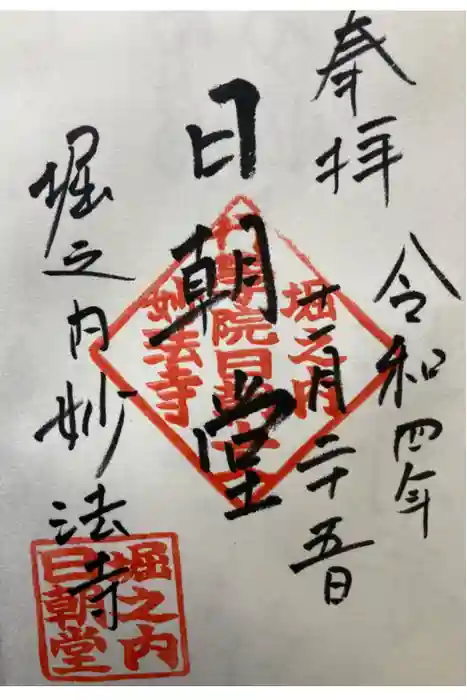 奉拝
令和四年
二月二十五日
日朝堂
堀之内妙法寺
堀之内
学院日朝
妙法寺
堀之内
日朝堂